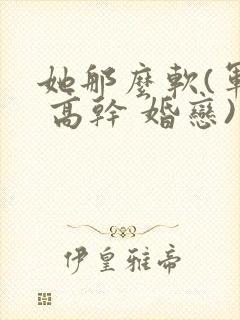 她那麼軟(軍
高幹 婚戀)
伊皇雅帝